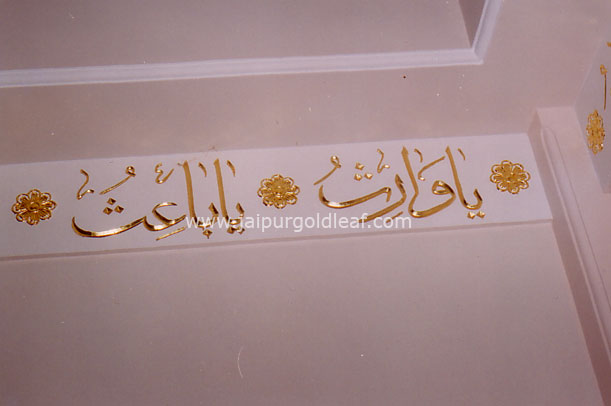 يَا وَارِثُ يَا بَاعِثُ
www.jaipurgoldleaf.com